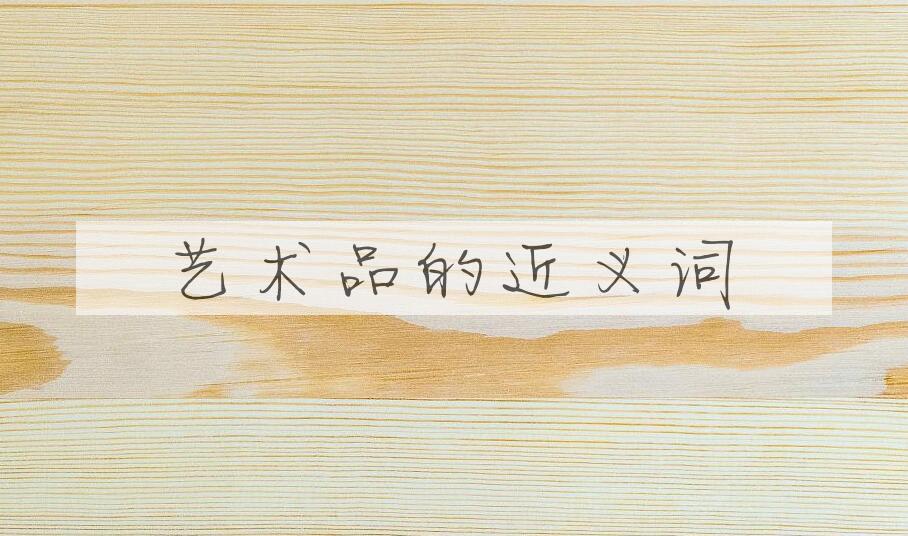 艺术品的近义词